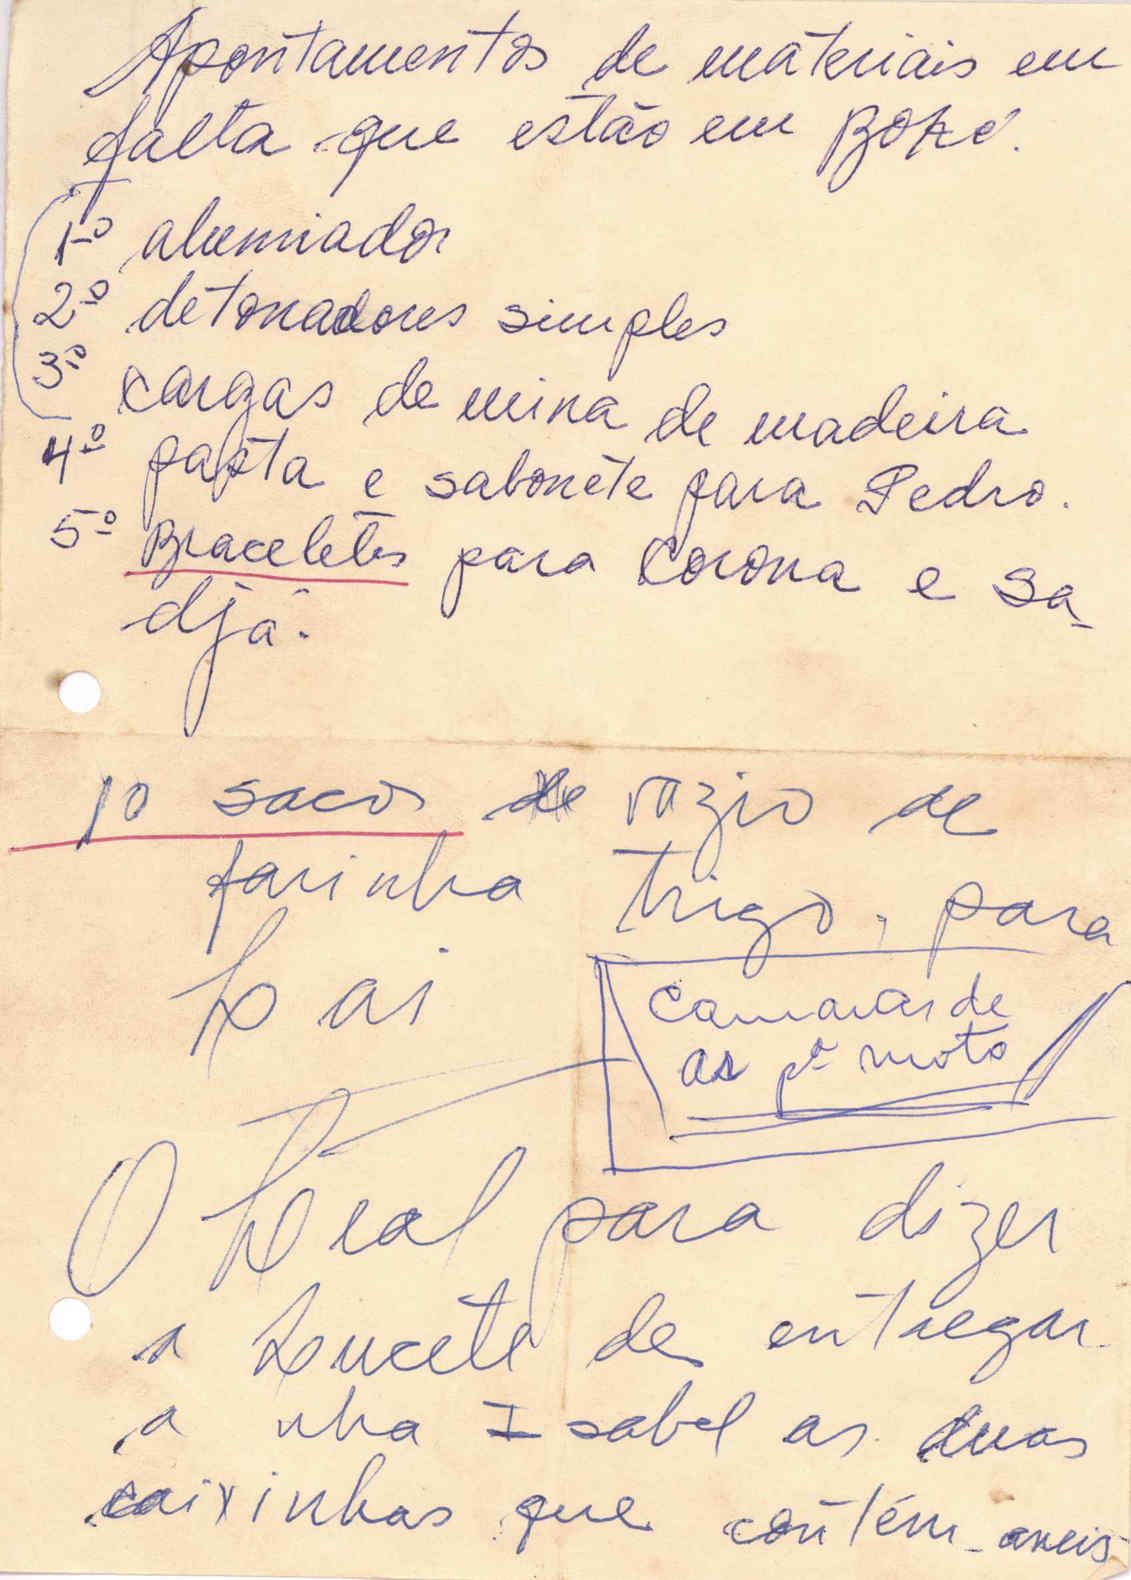 Apontamentos de materiais em
falta que estão em Boké.
1º alumiador
2º detonadores simples
3º cargas de mina de madeira
4º pasta e sabonete para Pedro.
5º Braceletes para Corona e Sa-
djá.
10 sacos de vazio de
farinha trigo, para
Lai
Camaras de
ar pª moto
O Leal para dizer
a Lucete de entregar
a nha Isabel as duas
caixinhas que contém aneis